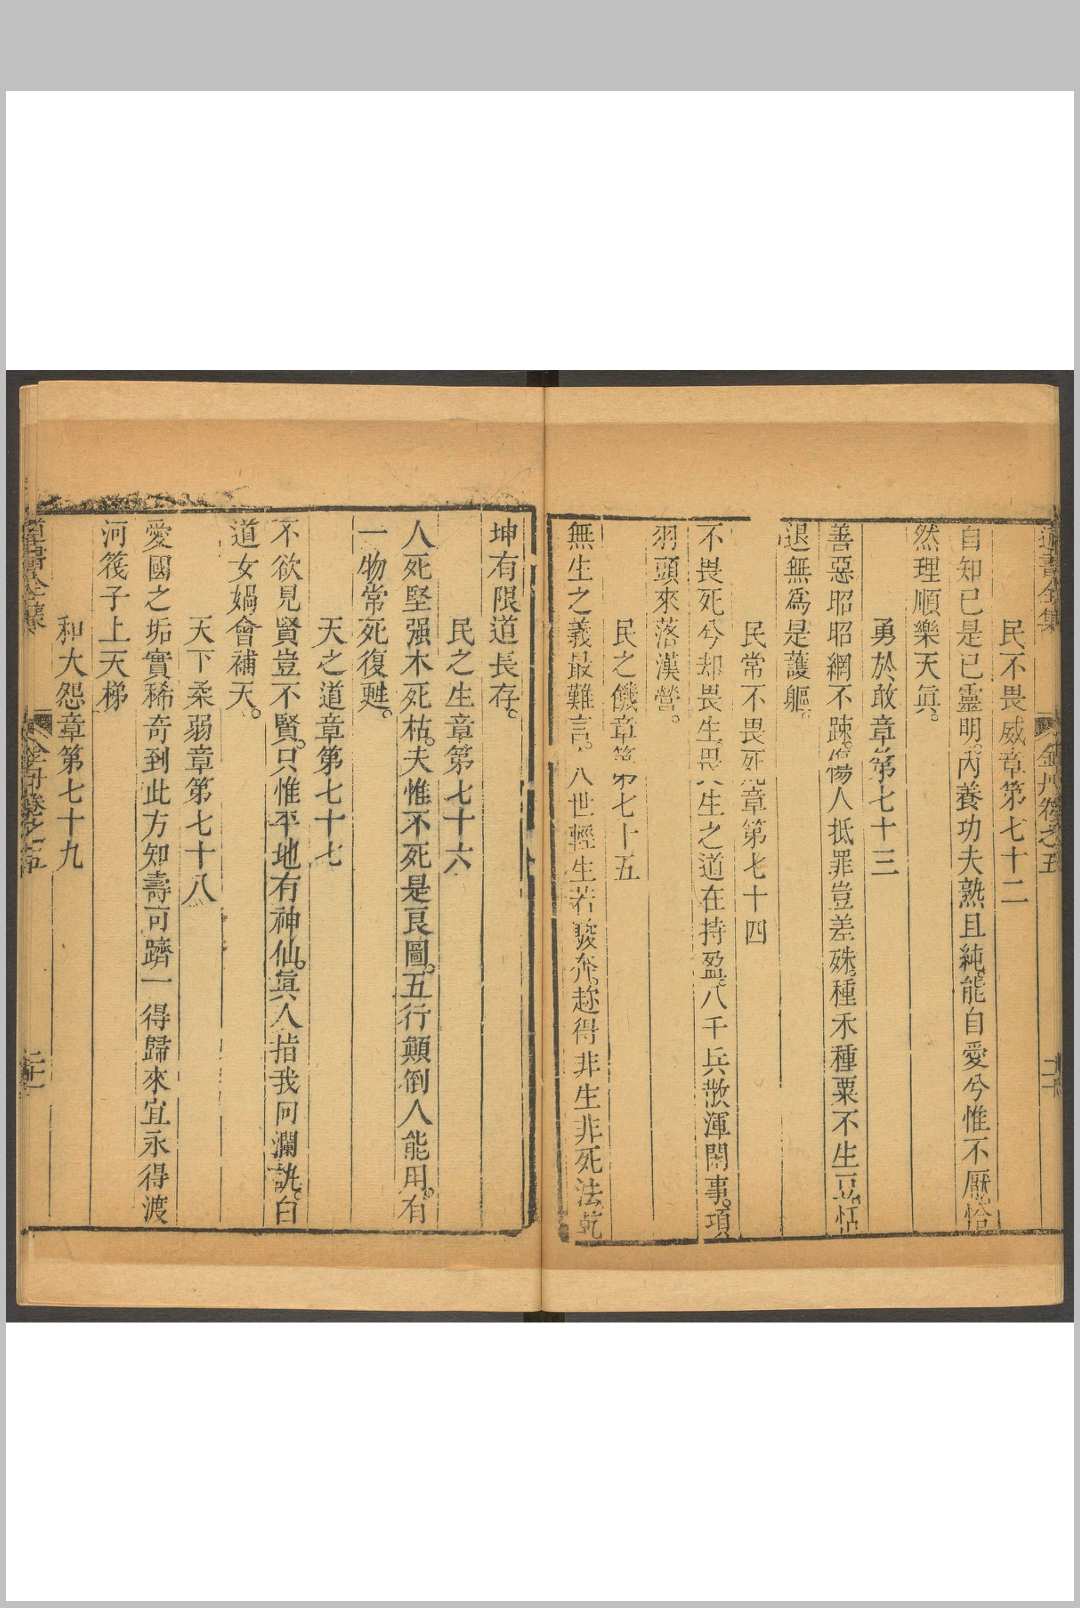 道書全集 金丹卷之五
民不畏威章第七十二
自知已是已靈明內養功夫熟且純能自愛兮惟不厭恰
然理順樂天眞
勇於敢章第七十三
善惡昭昭網不踈傷人抵罪豈差殊種禾種粟不生豆恬
退無爲是護軀
民常不畏死章第七十四
不畏死兮却畏生畏人生之道在持盈八千兵散渾閑事項
羽頭來落漢營
民之饑章第七十五
無生之義最難言八世輕生若駿奔趂得非生非死法乾
坤有限道長存
民之生章第七十六
人死堅强木死枯夫惟不死是良圖五行顛倒人能用有
一物常死復甦
天之道章第七十七
不欲見賢豈不賢只惟平地有神仙眞人指我何瀾說白
道女媧會補天
天下柔弱章第七十八
愛國之垢實稀奇到此方知壽可躋一得歸來宜永得渡
河筏子上天梯
和大怨章第七十九
道書全集 金丹卷之五 二十一